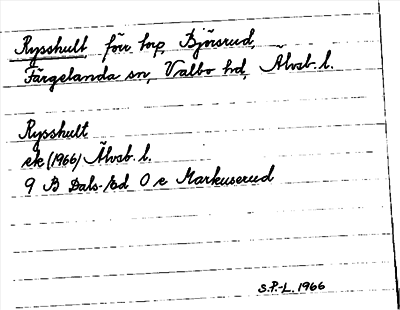 Rysshult förr torp, Björsrud,
Färgelanda sn, Valbo hd, Älvsb. l.
Rysshult
ek (1966) Älvsb. l.
9 B Dals-Ed 0 e Markuserud
S.P.-L. 1966